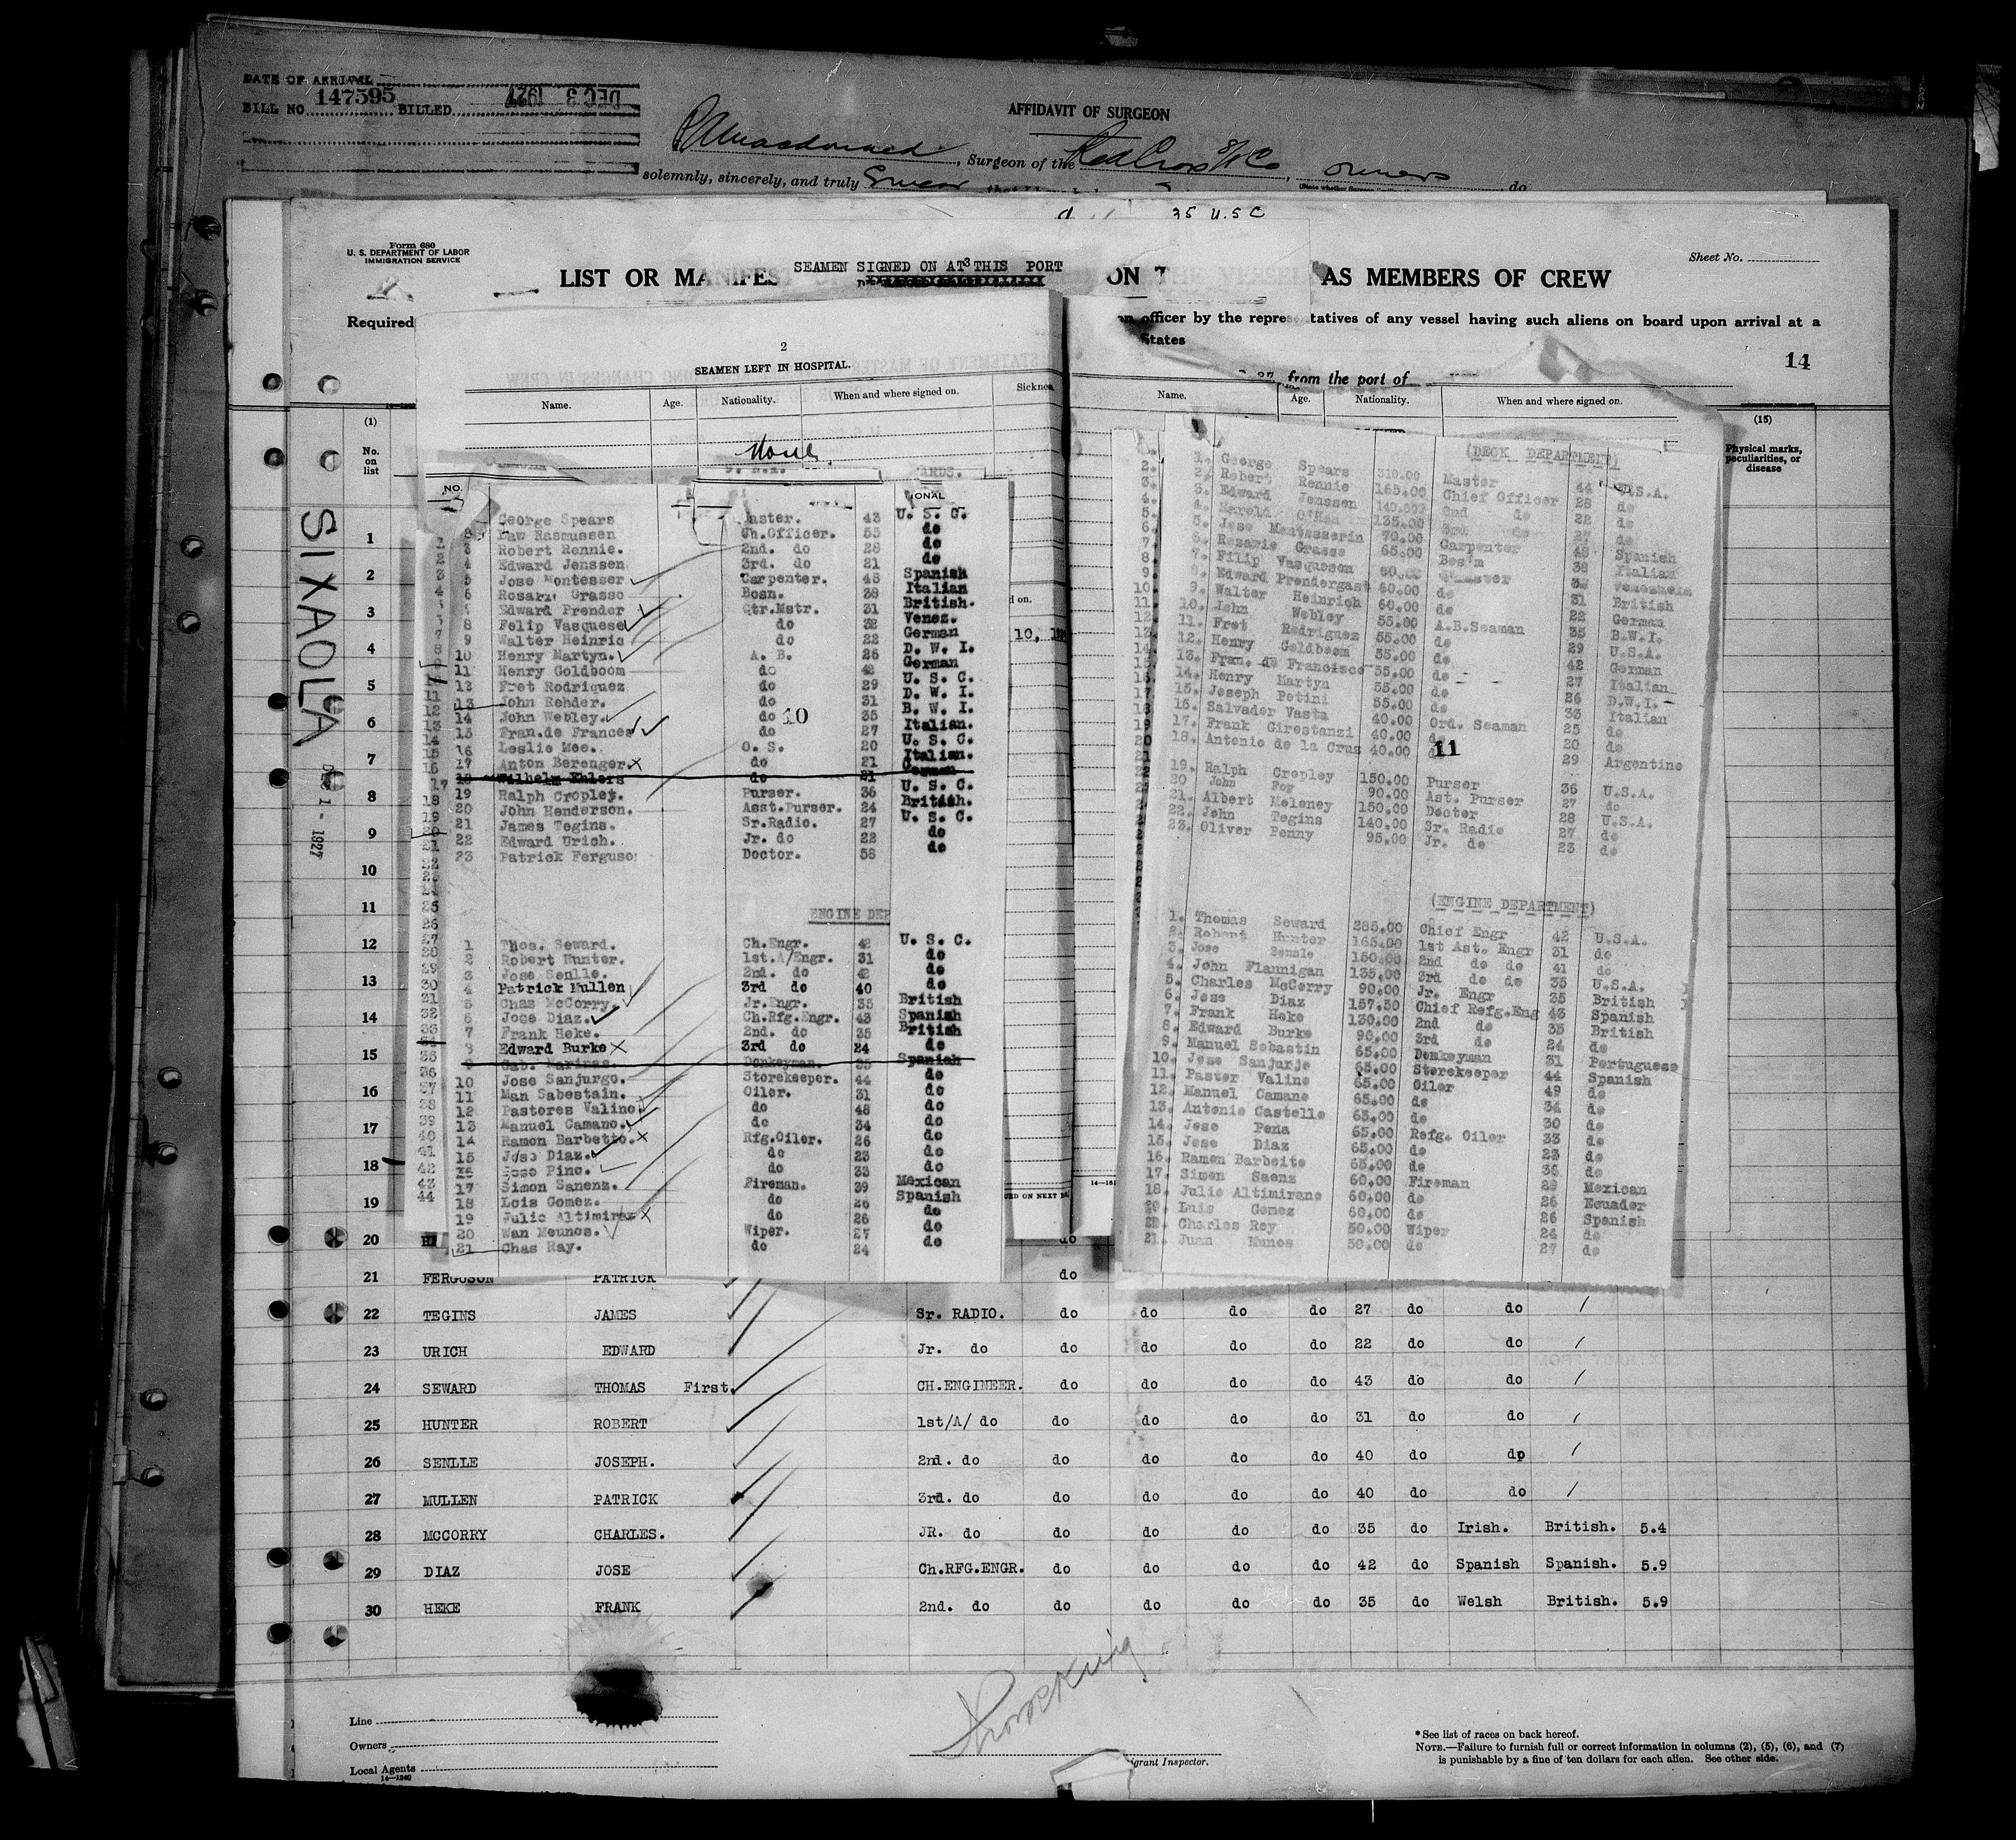 DATE OF ARRIVAL
BILL NO. 147595 BILLED DEC 3 1927
AFFIDAVIT OF SURGEON
, Surgeon of the Red Cross S/S Co, owners do
solemnly, sincerely, and truly Swear
35 U.S.C
Form 680
U. S. DEPARTMENT OF LABOR
IMMIGRATION SERVICE
Sheet No.
LIST OR MANIFEST
SEAMEN SIGNED ON AT THIS PORT
3
AS MEMBERS OF CREW
Required
officer by the representatives of any vessel having such aliens on board upon arrival at a
States
14
from the port of
SIXAOLA
DEC 1 - 1927
(1)
No. on list
(15)
Physical marks, peculiarities, or disease
2
SEAMEN LEFT IN HOSPITAL.
Name. Age. Nationality. When and where signed on.
None.
Name. Age. Nationality. When and where signed on.
NO.
George Spears Master. 43 U. S. C.
Law Rasmussen Ch.Officer. 55 do
3 Robert Rennie. 2nd. do 28 do
4 Edward Jenssen 3rd. do 21 do
5 Jose Montesser Carpenter. 48 Spanish
6 Rosario Grasso Bosn. 38 Italian
Edward Prender Qtr.Mstr. 31 British.
8 Felip Vasquese do 32 Venez.
9 Walter Heinric do 22 German
10 Henry Martyn. A. B. 26 D. W. I.
11 Henry Goldboom do 42 German
12 Fret Rodriquez do 29 U. S. C.
13 John Rehder. do 31 D. W. I.
14 John Webley. do 35 B. W. I.
10
15 Fran.de Frances do 27 Italian.
16 Leslie Mee. O. S. 20 U. S. C.
17 Anton Berenger. do 21 Italian.
18 Wilhelm Ehlers do 21 German
19 Ralph Cropley. Purser. 36 U. S. C.
20 John Henderson. Asst.Purser. 24 British.
21 James Tegins. Sr.Radio. 27 U. S. C.
22 Edward Urich. Jr. do 22 do
23 Patrick Ferguso Doctor. 58 do
ENGINE DEP
1 Thos. Seward. Ch.Engr. 42 U. S. C.
2 Robert Hunter. 1st.A/Engr. 31 do
3 Jose Senlle. 2nd. do 42 do
4 Patrick Mullen 3rd do 40 do
5 Chas McCorry. Jr.Engr. 35 British
6 Jose Diaz. Ch.Rfg.Engr. 43 Spanish
7 Frank Heke. 2nd. do 35 British
8 Edward Burke 3rd do 24 do
9 Gab. Marinas. Donkeyman. 35 Spanish
10 Jose Sanjurgo. Storekeeper. 44 do
11 Man Sabestain. Oiler. 31 do
12 Pastores Valino. do 48 do
13 Manuel Camano. do 34 do
14 Ramon Barbetto. Rfg.Oiler. 26 do
15 Jose Diaz. do 23 do
16 Jose Pino. do 33 do
17 Simon Sanenz. Fireman. 39 Mexican
18 Lois Gomez. do 26 Spanish
19 Julio Altimirez do 26 do
20 Wan Meunos. Wiper. 27 do
21 Chas Ray. do 24 do
(DECK DEPARTMENT)
1. George Spears 310.00 Master 44 U.S.A.
2. Robert Rennie 165.00 Chief Officer 28 do
3. Edward Jenssen 140.00 2nd do 22 do
4. Harold 135.00 3rd do 27 do
5. Jose Montesserin 70.00 Carpenter 48 Spanish
6. Rozario Grasso 65.00 Bos'm 38 Italian
7. Filip Vasquesen 60.00 32
8. Edward Prendergast 60.00 do 31 British
9. Walter Heinrich 60.00 do 22 German
10. John Webley 55.00 A.B.Seaman 35 B.W.I.
11. Fret Rodriguez 55.00 do 29 U.S.A.
12. Henry Goldboom 55.00 do 42 German
13. Fran. de Francisco 55.00 do 27 Italian
14. Henry Martyn 55.00 do 26 D.W.I.
15. Joseph Petini 55.00 do 33 Italian
16. Salvador Vasta 40.00 Ord. Seaman 25 do
17. Frank Girestanzi 40.00 do 20 do
18. Antonio de la Cruz 40.00 11 29 Argentine
19. Ralph Cropley 150.00 Purser 36 U.S.A.
20 John Foy 90.00 Ast. Purser 27 do
21. Albert Meloney 150.00 Doctor 28 U.S.A.
22. John Tegins 140.00 Sr. Radio 27 do
23. Oliver Penny 95.00 Jr. do 23 do
(ENGINE DEPARTMENT)
1. Thomas Seward 285.00 Chief Engr 42 U.S.A.
2. Robert Hunter 165.00 1st Ast. Engr 31 do
3. Jose Sennle 150.00 2nd do do 41 do
4. John Flannigan 135.00 3rd do do 35 U.S.A.
5. Charles McCorry 90.00 Jr. Engr 35 British
6. Jose Diaz 157.50 Chief Refg.Eng 43 Spanish
7. Frank Heke 130.00 2nd do 35 British
8. Edward Burke 90.00 3rd do 24 do
9. Manuel Sebastin 65.00 Donkeyman 31 Portuguese
10. Jose Sanjurjo 65.00 Storekeeper 44 Spanish
11. Paster Valine 65.00 Oiler 49 do
12. Manuel Camano 65.00 do 34 do
13. Antonio Castello 65.00 do 30 do
14. Jose Pena 65.00 Refg. Oiler 33 do
15. Jose Diaz 65.00 do 23 do
16. Ramon Barbeito 65.00 do 36 do
17. Simon Saenz 60.00 Fireman 29 Mexican
18. Julio Altimirano 60.00 do 26 Ecuador
20. Luis Gomez 60.00 do 26 Spanish
22. Charles Roy 50.00 Wiper 24 do
21. Juan Munos 50.00 do 27 do
21 FERGUSON PATRICK do
22 TEGINS JAMES Sr. RADIO. do do do do 27 do do
23 URICH EDWARD Jr. do do do do do 22 do do
24 SEWARD THOMAS First. CH.ENGINEER. do do do do 43 do do
25 HUNTER ROBERT 1st/A/ do do do do do 31 do do
26 SENLLE JOSEPH. 2nd. do do do do do 40 do dp
27 MULLEN PATRICK 3rd. do do do do do 40 do do
28 MCCORRY CHARLES. JR. do do do do do 35 do Irish. British. 5.4
29 DIAZ JOSE Ch.RFG.ENGR. do do do do 42 do Spanish Spanish. 5.9
30 HEKE FRANK 2nd. do do do do do 35 do Welsh British. 5.9
Line
Owners
Local Agents
14—1240
Immigrant Inspector.
* See list of races on back hereof.
NOTE.—Failure to furnish full or correct information in columns (2), (5), (6), and (7)
is punishable by a fine of ten dollars for each alien. See other side.